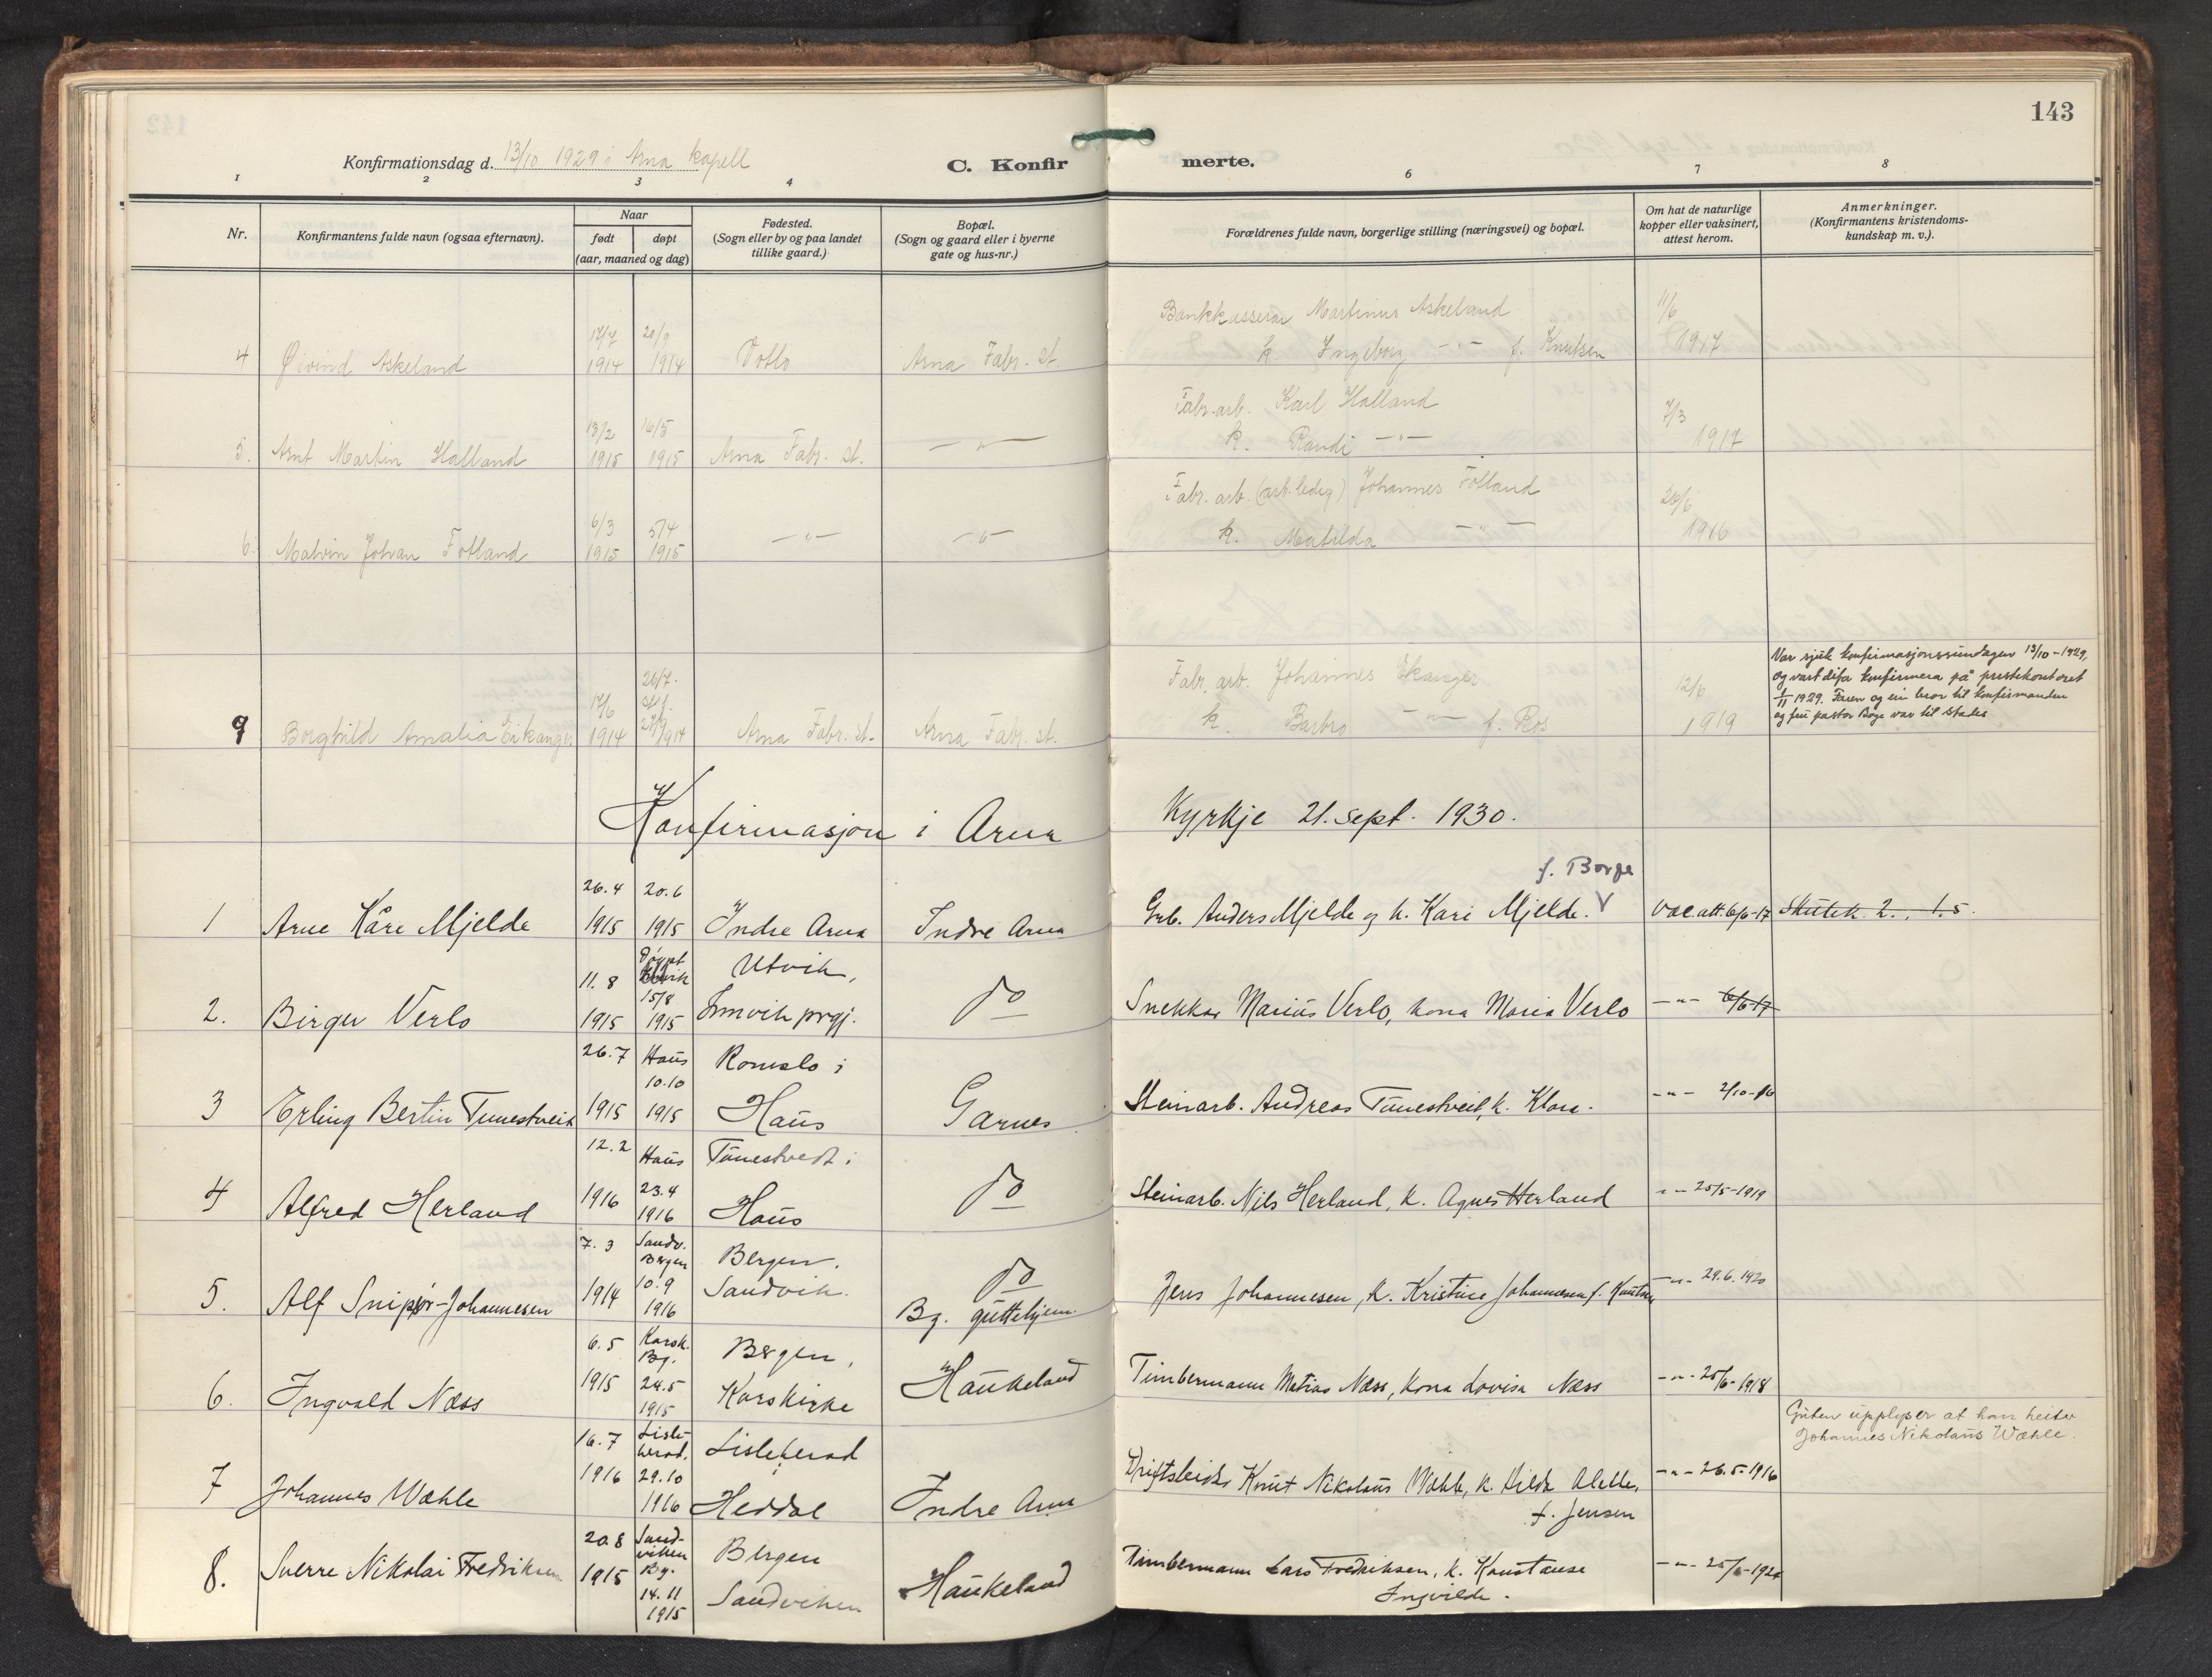 143
Konfirmationsdag d. 13/10 1929 i Arna kapell
C. Konfir
merte.
1 2 3 4 6 7 8
Nr.
Konfirmantens fulde navn (ogsaa efternavn).
Naar
født
døpt
(aar, maaned og dag)
Fødested.
(Sogn eller by og paa landet
tillike gaard.)
Bopæl.
(Sogn og gaard eller i byerne
gate og hus-nr.)
Forældrenes fulde navn, borgerlige stilling (næringsvei) og bopæl.
Om hat de naturlige
kopper eller vaksinert,
attest herom.
Anmerkninger.
(Konfirmantens kristendoms-
kundskap m. v.).
Bankkasserar Martinus Askeland 11/6
17/7 20/9
4 Øivind Askeland 1914 1914 Arna Fabr. st. k. Ingeborg -"- f. Knutsen 1917
Fabr. arb. Karl Halland 7/3
13/2 16/5
5. Arnt Martin Halland 1915 1915 Arna Fabr. st. -"- k. Randi -"- 1917
Fabr. arb. (arb. ledig) Johannes Fotland 28/6
6/3 5/4
6. Malvin Johan Fotland 1915 1915 -"- -"- k. Matilda -"- 1916
Var sjuk konfirmasjonssundagen 13/10-1929,
og vart difor konfirmera på prestekontoret
1/11 1929. Faren og ein bror til konfirmanden
og fru pastor Bøge var til stades
26/7.
Fabr. arb. Johannes Eikanger 12/6
17/6 27/9
9 Borghild Amalia Eikanger 1914 1914 Arna Fabr. st. Arna Fabr. st. k. Barbro -"- f. Ros 1919
Konfirmasjon i Arna Kyrkje 21. sept. 1930.
f. Borge
26.4 20.6
1 Arne Kåre Mjelde 1915 1915 Indre Arna Indre Arna Grb. Anders Mjelde og k. Kari Mjelde. V vac. att. 6/6-17 Skutek 2., 1.5.
Døypt
11.8 Utvik,
15/8
2. Birger Verlo 1915 1915 Innvik prgj. do Snekkar Marius Verlo, kona Maria Verlo -"- 6/6-17
26.7 Haus Romslo i
10.10
3 Erling Bertin Tunestveit 1915 1915 Haus Garnes Steinarb. Andreas Tunestveit, k. Klara. -"- 2/10-16
12.2 Haus Tunestvedt i
23.4
4 Alfred Herland 1916 1916 Haus do Steinarb. Nils Herland, k. Agnes Herland -"- 25/5-1919
7.3 Sandv. Bergen Bergen.
10.9 Sandvik. do
5. Alf Snipør-Johannesen 1914 1916 Bg. guttehjem. Jens Johannesen, k. Kristine Johannesen f. Knutsen -"- 29.6.1920
6.5 Korsk. Bg. Bergen,
24.5
6. Ingvald Næss 1915 1915 Korskirke Haukeland Timbermann Matias Næss, kona Lovisa Næss -"- 25/6-1918
Guten upplyser at han heiter
Johannes Nikolaus Wæhle.
16.7 Lisleherad. Lisleherad
29.10
7 Johannes Wæhle 1916 1916 Heddal Indre Arna Driftsleidar Knut Nikolaus Wæhle, k. Hilda Alette, -"- 26.5.1916
f. Jensen
20.8 Sandviken Bg. Bergen
14.11
8. Sverre Nikolai Fredriksen 1915 1915 Sandviken Haukeland Timbermann Lars Fredriksen, k. Konstanse
Ingvilde.